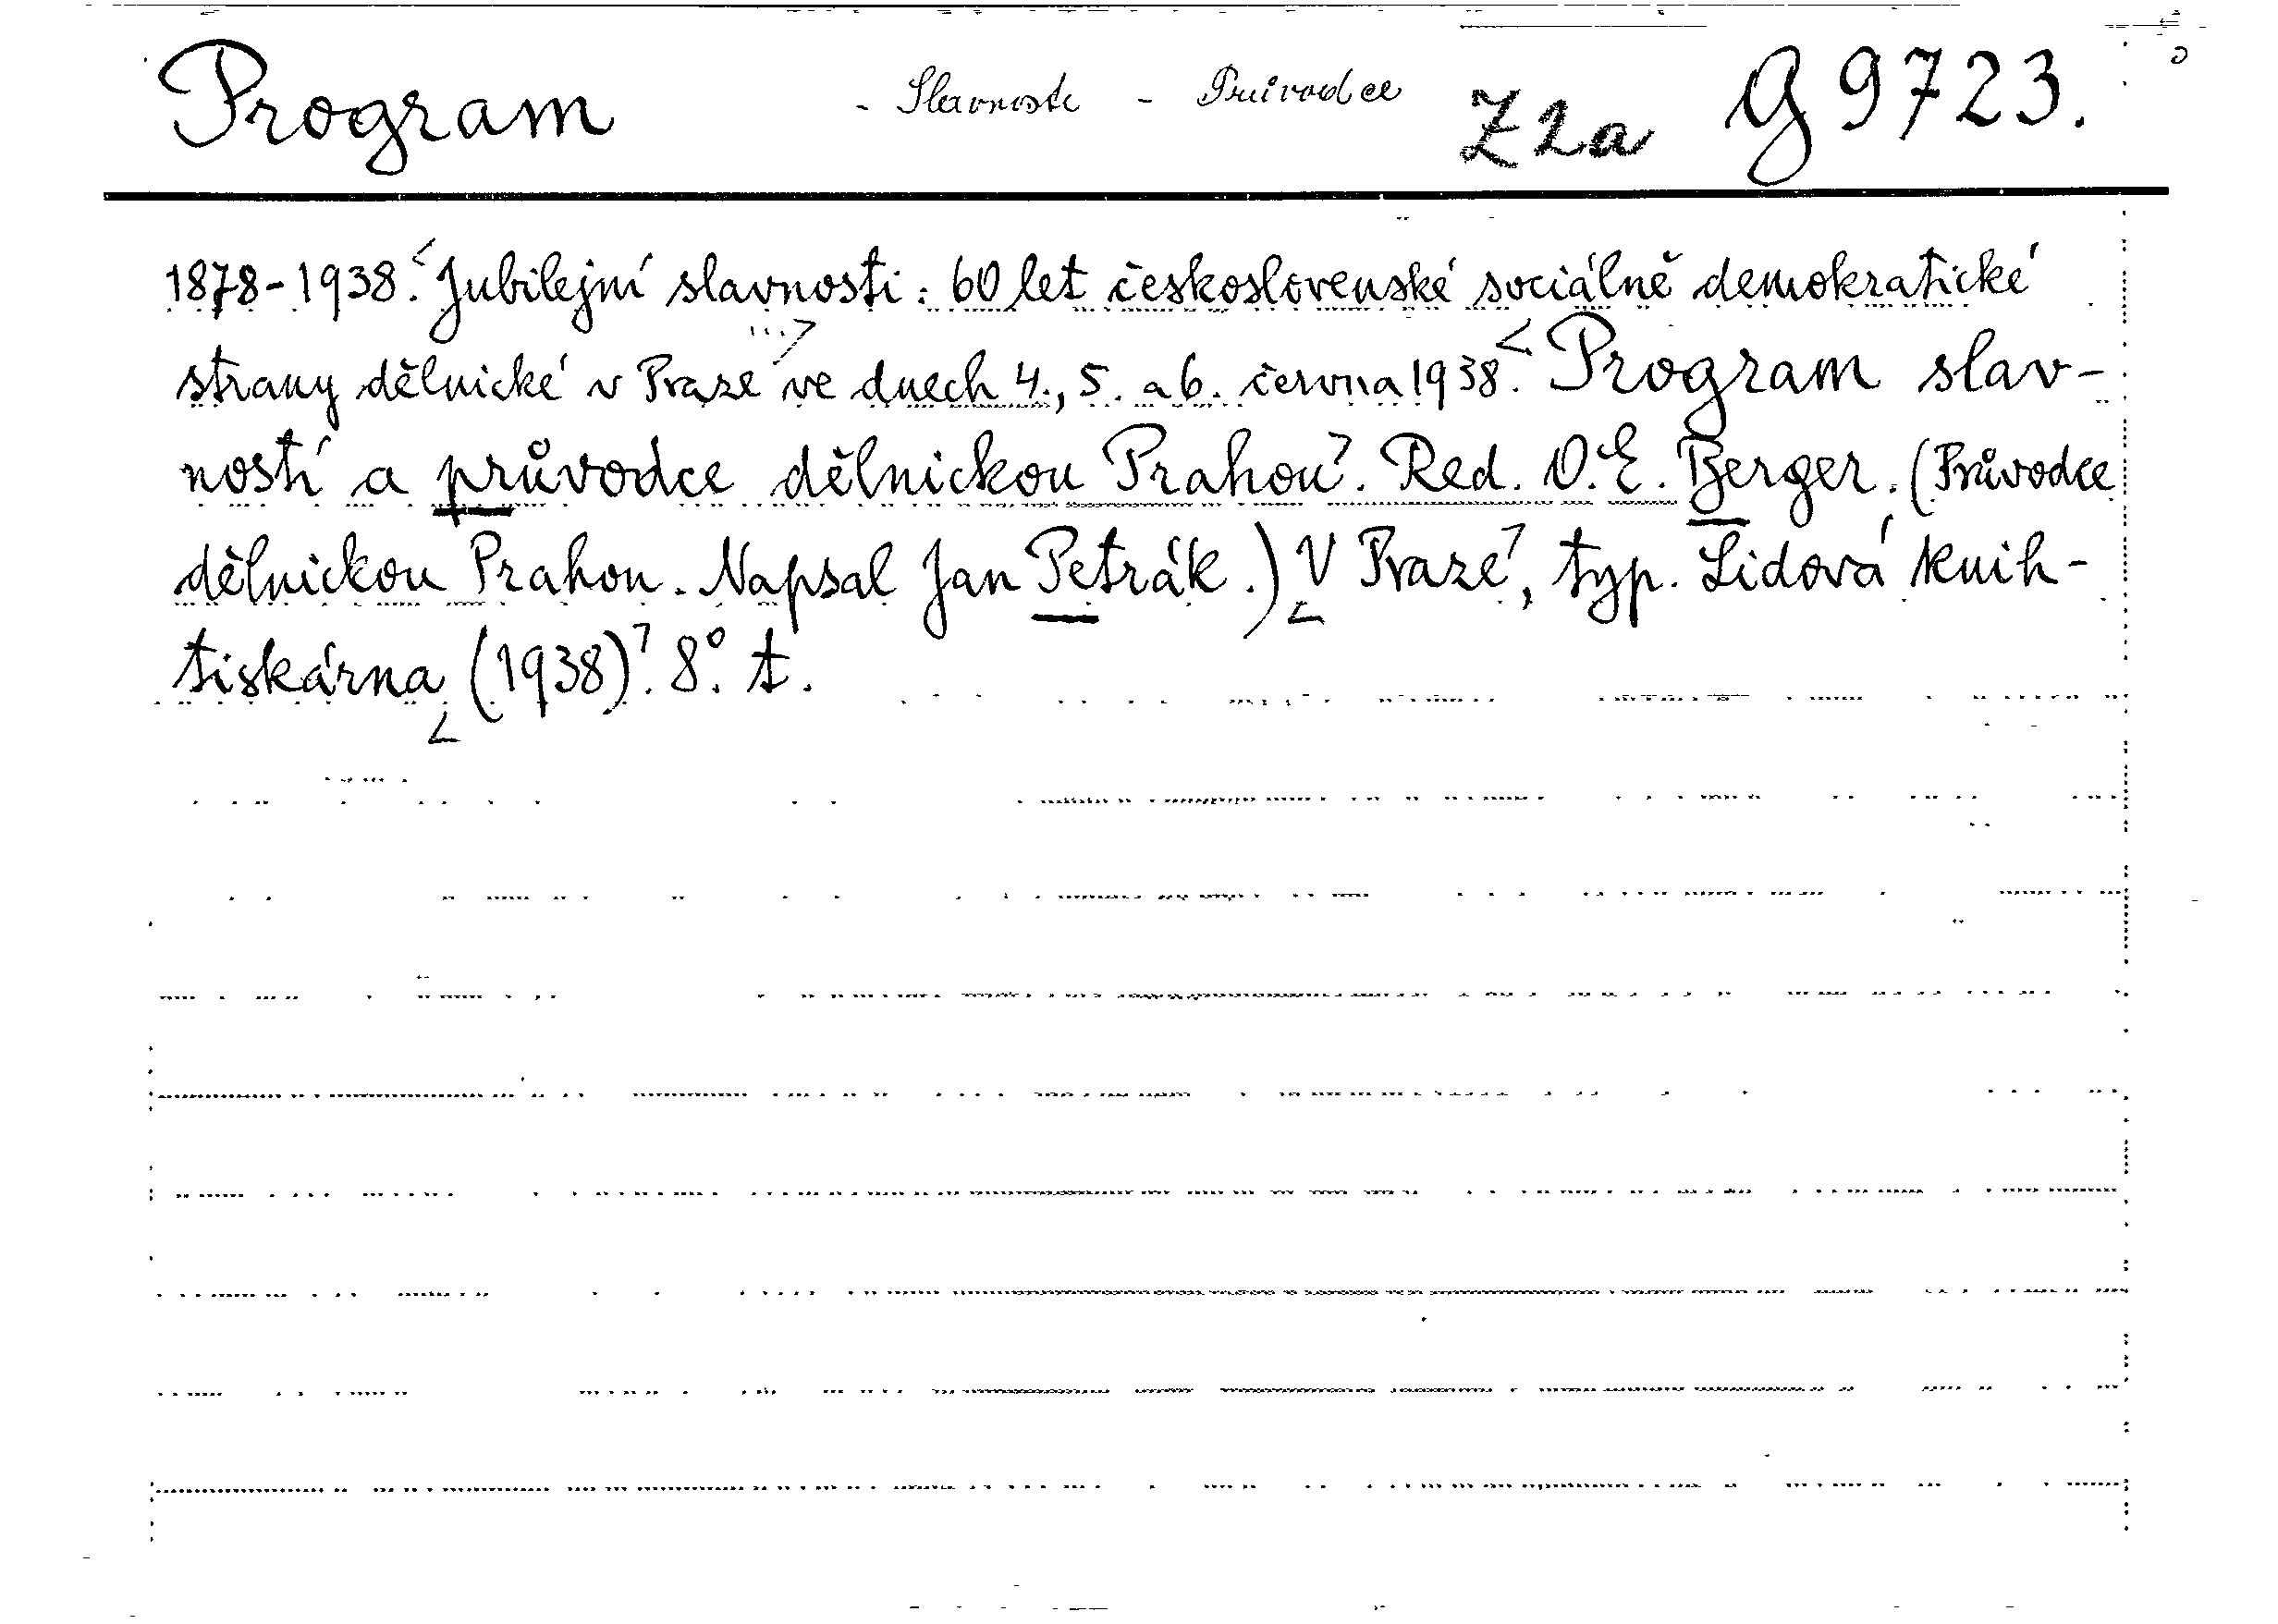 Program - Slavnosti - Průvodce Z 2a G 9723.
1878-1938. Jubilejní slavnosti: 60 let československé sociálně demokratické
strany dělnické v Praze ve dnech 4., 5. a 6. června 1938. Program slav-
ností a průvodce dělnickou Prahou. Red. O. E. Berger. (Průvodce
dělnickou Prahou. Napsal Jan Petrák.) V Praze, typ. Lidová knih-
tiskárna (1938). 8°. t.